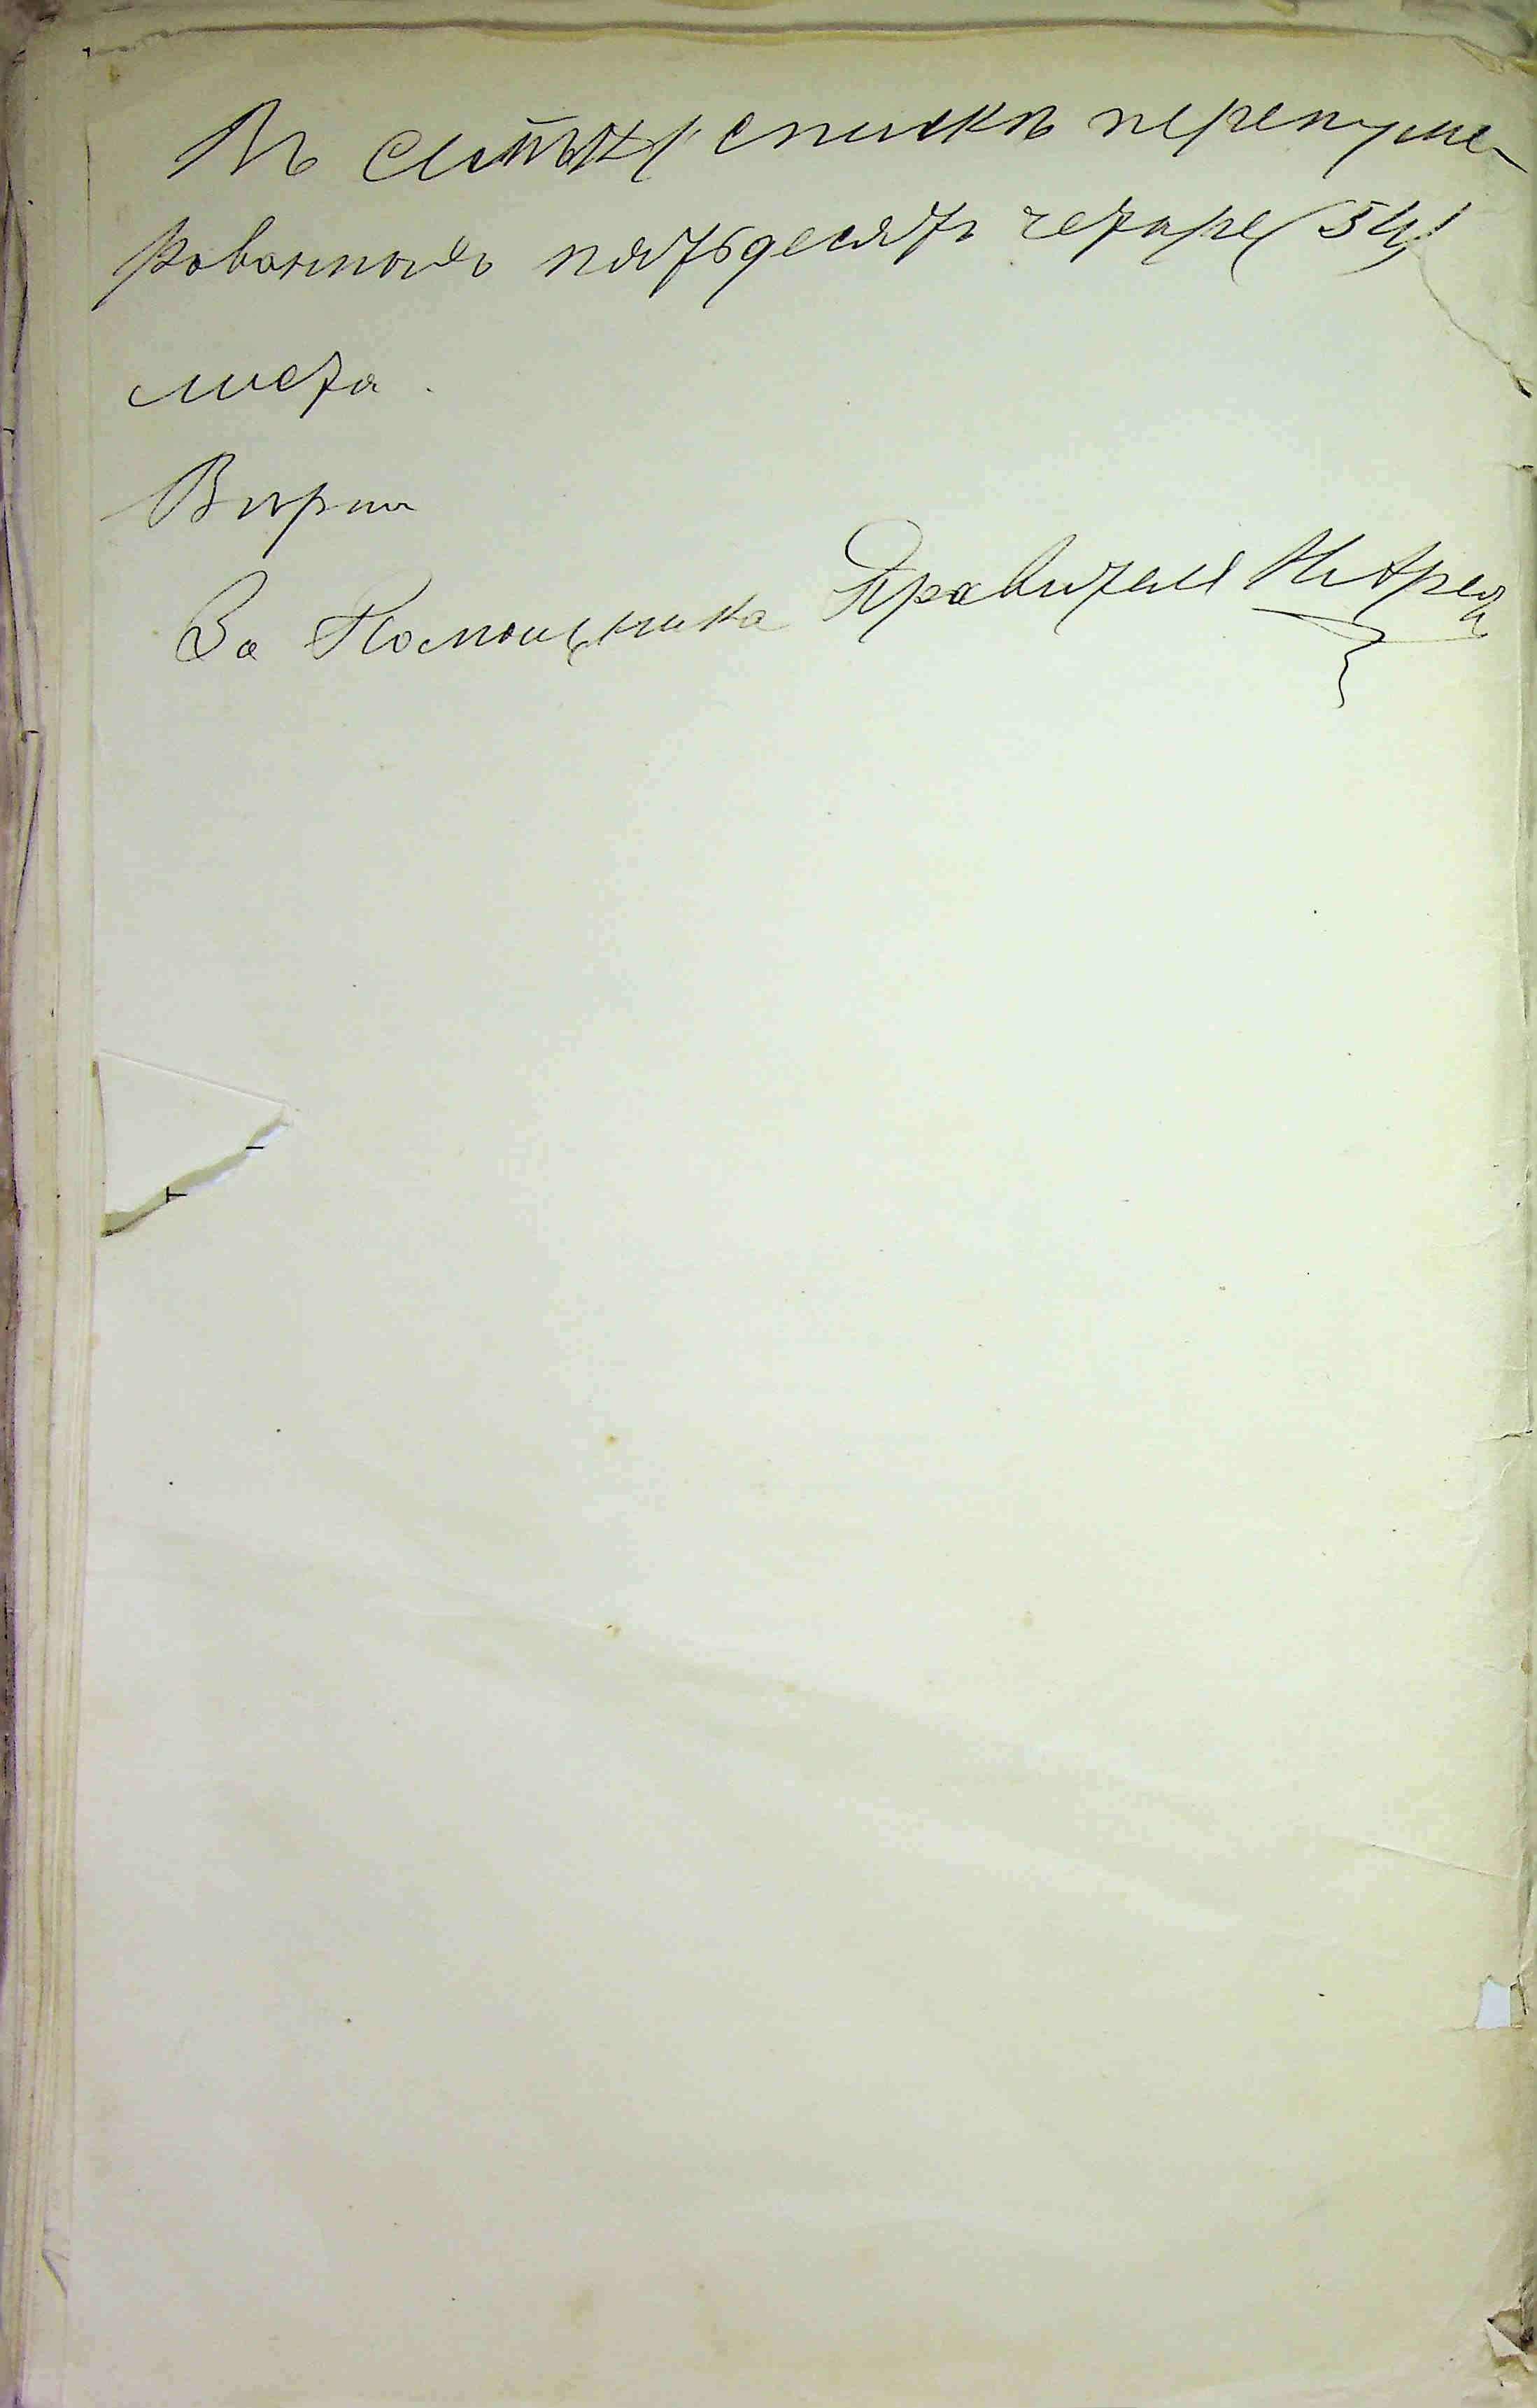 Въ спискѣ перенуме-
рованныхъ пятьдесятъ четыре (54)
листа.
Вѣрно
За Помощника Правителя